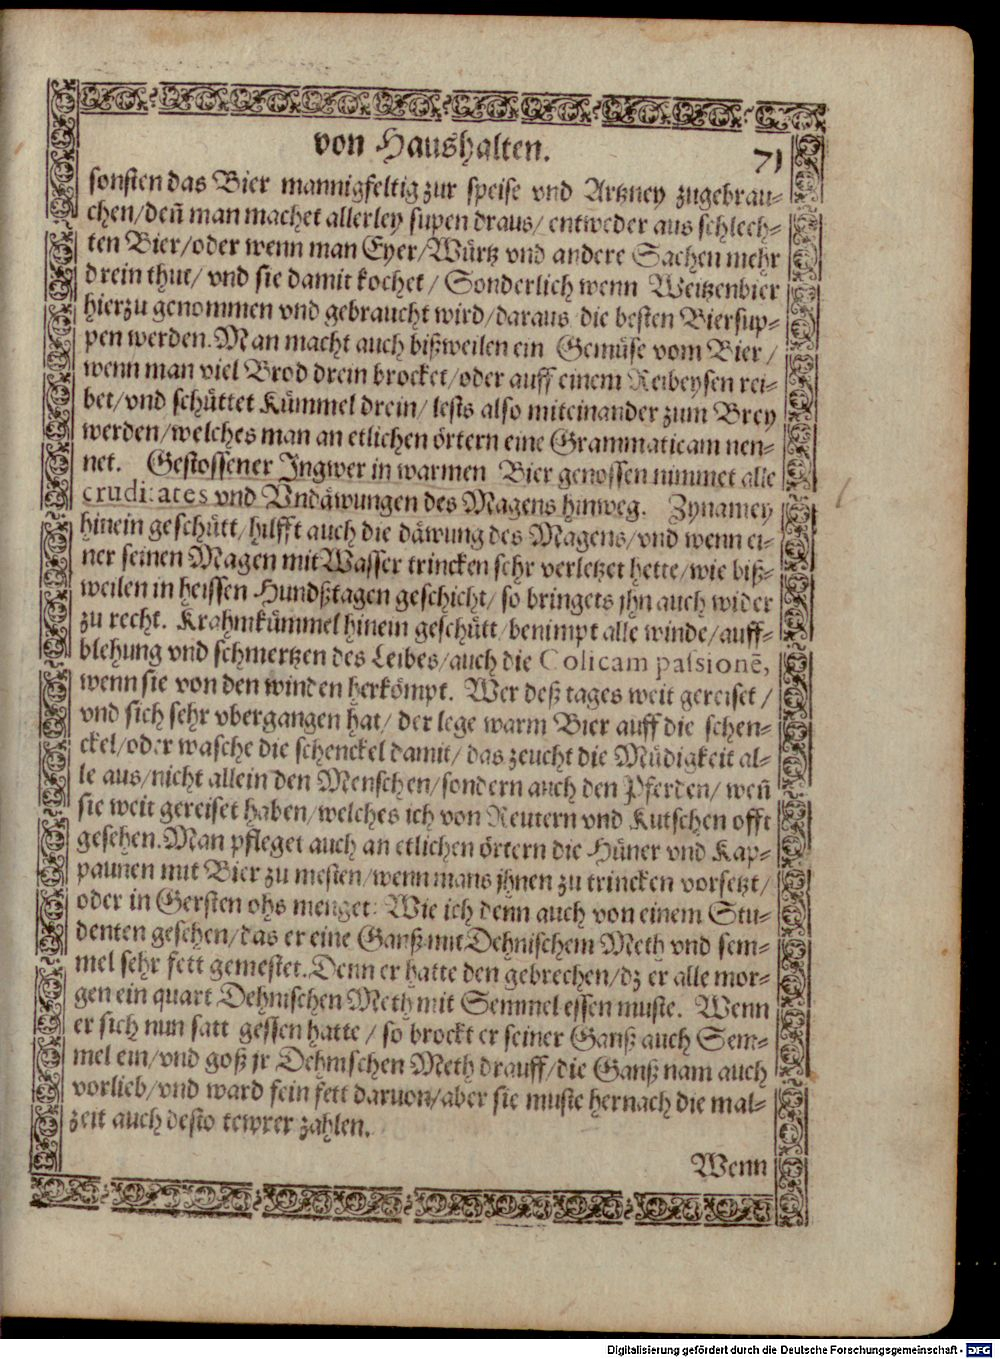 von Haushalten. 71
sonsten das Bier mannigfeltig zur speise vnd Artzney zugebrau-
chen/deñ man machet allerley supen draus/ entweder aus schlech-
ten Bier/oder wenn man Eyer/Würtz vnd andere Sachen mehr
drein thut/ vnd sie damit kochet/ Sonderlich wenn Weitzenbier
hierzu genommen vnd gebraucht wird/daraus die besten Biersup-
pen werden. Man macht auch bißweilen ein Gemüse vom Bier/
wenn man viel Brod drein brocket/oder auff einem Reibeysen rei-
bet/vnd schüttet Kümmel drein/ lests also miteinander zum Brey
werden/welches man an etlichen örtern eine Grammaticam nen-
net. Gestossener Ingwer in warmen Bier genossen nimmet alle
cruditates vnd Vndäwungen des Magens hinweg. Zynamey
hinein geschütt/hilfft auch die däwung des Magens/vnd wenn ei-
ner seinen Magen mit Wasser trincken sehr verletzet hette/wie biß-
weilen in heissen Hundßtagen geschicht/ so bringets jhn auch wider
zu recht. Krahmkümmel hinein geschütt/benimpt alle winde/auff-
blehung vnd schmertzen des Leibes/auch die Colicam passionē,
wenn sie von den winden herkömpt. Wer deß tages weit gereiset/
vnd sich sehr vbergangen hat/ der lege warm Bier auff die schen-
ckel/oder wasche die schenckel damit/ das zeucht die Müdigkeit al-
le aus/nicht allein den Menschen/sondern auch den Pferden/ weñ
sie weit gereiset haben/welches ich von Reutern vnd Kutschen offt
gesehen. Man pfleget auch an etlichen örtern die Hüner vnd Kap-
paunen mit Bier zu mesten/wenn mans jhnen zu trincken vorsetzt/
oder in Gersten ohs menget: Wie ich denn auch von einem Stu-
denten gesehen/das er eine Ganß mit Dehnischem Meth vnd sem-
mel sehr fett gemestet. Denn er hatte den gebrechen/dz er alle mor-
gen ein quart Dehnischen Meth mit Semmel essen muste. Wenn
er sich nun satt gessen hatte/ so brockt er seiner Ganß auch Sem-
mel ein/vnd goß jr Dehnischen Meth drauff/die Ganß nam auch
vorlieb/vnd ward fein fett daruon/aber sie muste hernach die mal-
zeit auch desto tewrer zahlen.
Wenn
Digitalisierung gefördert durch die Deutsche Forschungsgemeinschaft - DFG